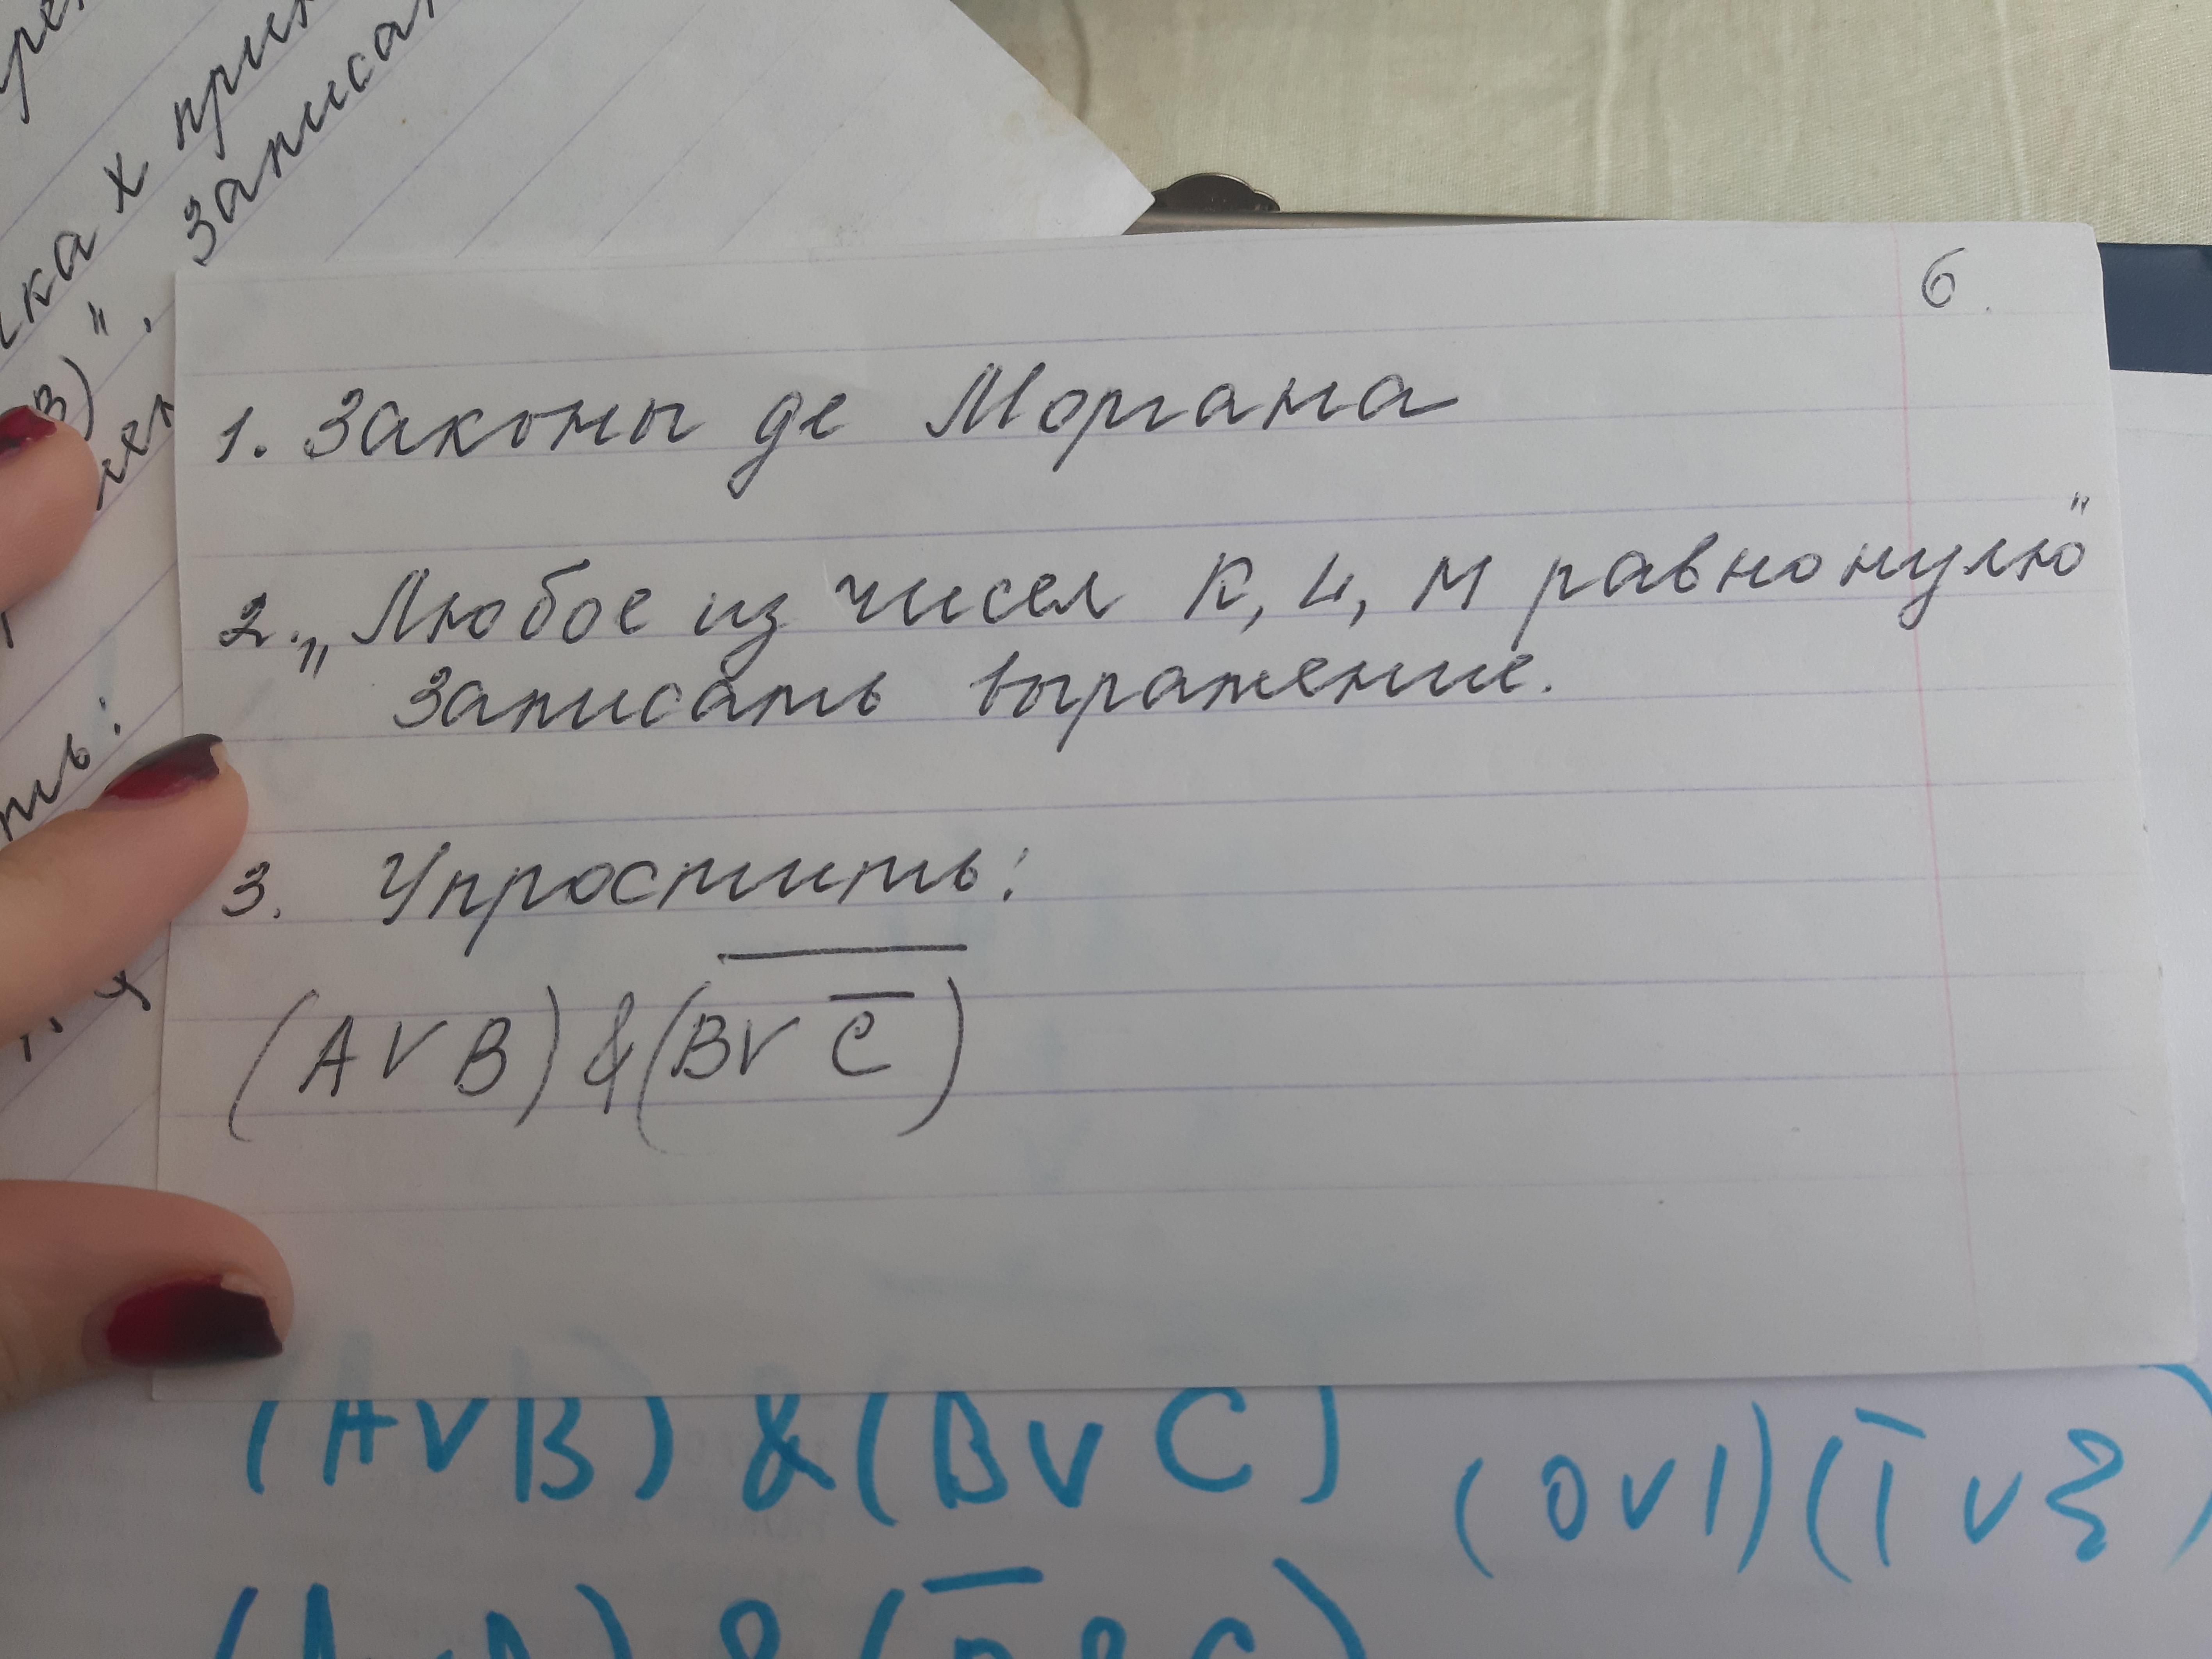 х
"
.
записа
6.
1. Законы де Моргана
2. „Любое из чисел K, L, M равно нулю"
записать выражение.
3. Упростить:
(A V B) & (B V C̅)̅
(AVB) & (B V C) (0 V 1)(1̅ V